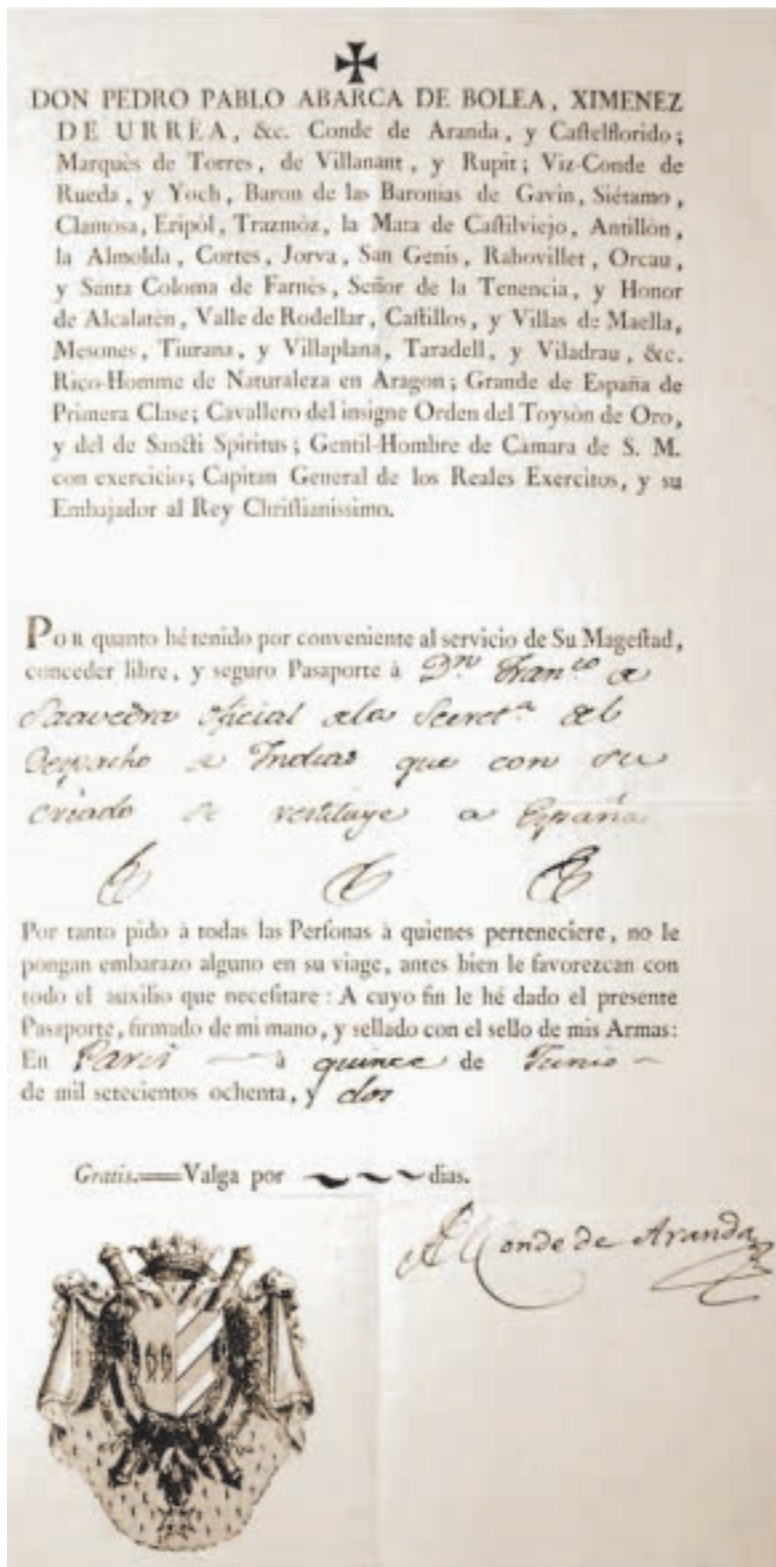 DON PEDRO PABLO ABARCA DE BOLEA, XIMENEZ
DE URREA, &c. Conde de Aranda, y Caſtelflorido;
Marquès de Torres, de Villanant, y Rupit; Viz-Conde de
Rueda, y Yoch, Baron de las Baronias de Gavin, Siétamo,
Clamosa, Eripòl, Trazmòz, la Mata de Caſtilviejo, Antillòn,
la Almolda, Cortes, Jorva, San Genis, Rabovillet, Orcau,
y Santa Coloma de Farnès, Señor de la Tenencia, y Honor
de Alcalatèn, Valle de Rodellar, Caſtillos, y Villas de Maella,
Mesones, Tiurana, y Villaplana, Taradell, y Viladrau, &c.
Rico-Homme de Naturaleza en Aragon; Grande de España de
Primera Clase; Cavallero del insigne Orden del Toysòn de Oro,
y del de Sancti Spiritus; Gentil-Hombre de Camara de S. M.
con exercicio; Capitan General de los Reales Exercitos, y su
Embajador al Rey Chriſtianissimo.
POR quanto hé tenido por conveniente al servicio de Su Mageſtad,
conceder libre, y seguro Pasaporte à Dn. Franco. de
Saavedra oficial dela Secreta. del
Despacho de Indias que con su
criado se restituye a España
Por tanto pido à todas las Perſonas à quienes perteneciere, no le
pongan embarazo alguno en su viage, antes bien le favorezcan con
todo el auxilio que neceſitare: A cuyo fin le hé dado el presente
Pasaporte, firmado de mi mano, y sellado con el sello de mis Armas:
En Paris à quince de Junio
de mil setecientos ochenta, y dos
Gratis. Valga por dias.
El Conde de Aranda